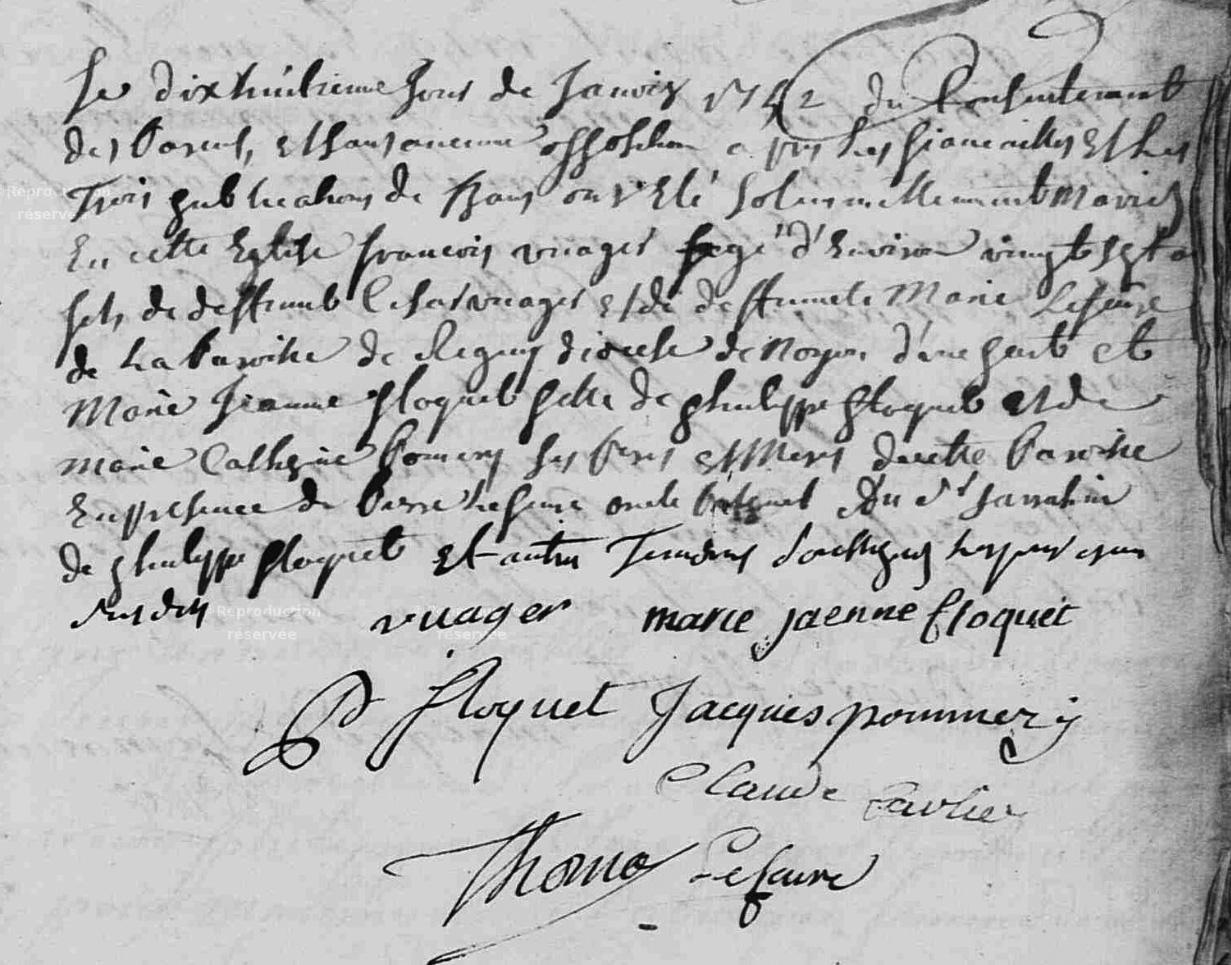 Le dixhuitieme jour de Janvier 1742 du Consentement
des Parens, et sans aucunne opposition apres les fiancailles et les
Trois publications de Bans ont Eté Solemnellement Mariés
En cette Eglise francois vuager agé d'Environ vingt sept a
fils de deffunct Cesar vuager et de deffuncte Marie Lefevre
de la Paroisse de diocese de Noyon d'une part et
Marie Jeanne floquet fille de philippe floquet et de
Marie Catherine Pomery ses Pere et Mere de cette Paroisse
En presence de Pierre lefevre oncle du
de philippe floquet et autres Temoins Soussignes
vuager marie jaenne floquet
P floquet Jacques pommery
Claude
Thoma Lefevre